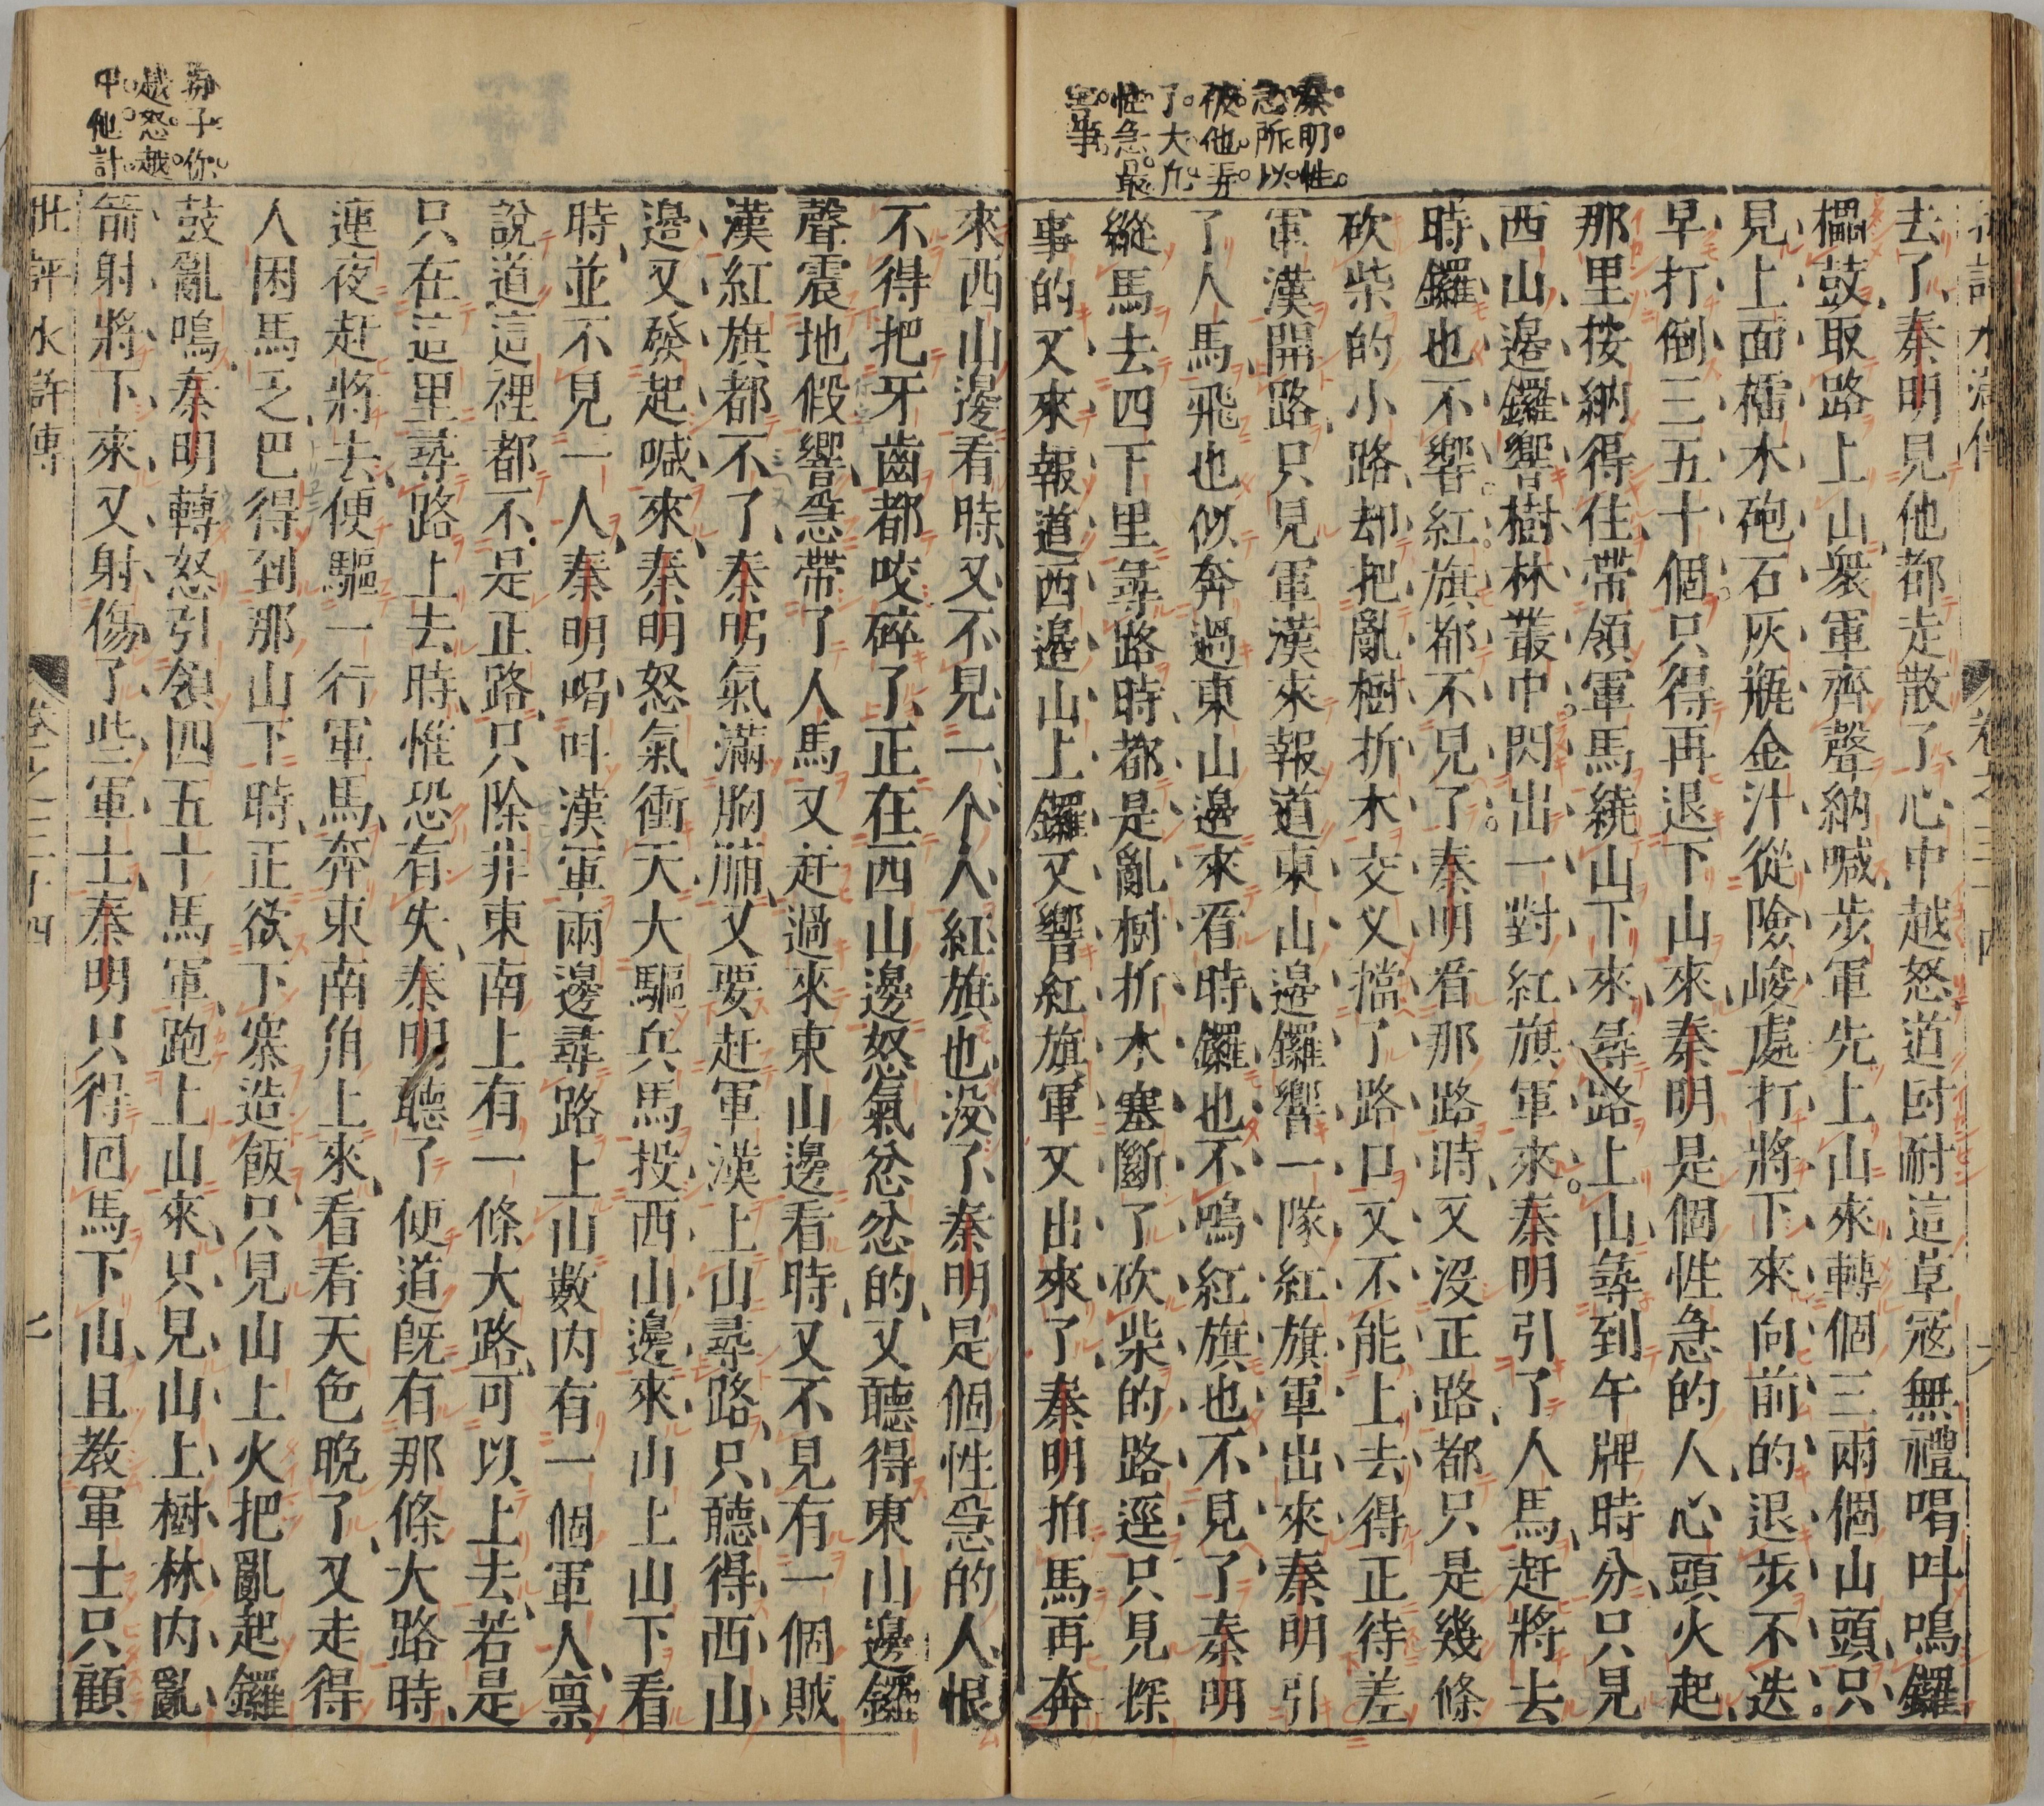 秦明性
急所以
被他弄
了大凡
性急最
害事
去了秦明見他都走散了心中越怒道叵耐這草寇無禮喝叫鳴鑼
擂鼓取路上山衆軍齊聲納喊步軍先上山來轉個三兩個山頭只
見上面檑木砲石灰瓶金汁從險峻處打將下來向前的退步不迭
早打倒三五十個只得再退下山來秦明是個性急的人心頭火起
那里按納得住帶領軍馬繞山下來尋路上山尋到午牌時分只見
西山邊鑼響樹林叢中閃出一對紅旗軍來秦明引了人馬赶將去
時鑼也不響紅旗都不見了秦明看那路時又沒正路都只是幾條
砍柴的小路却把亂樹折木交叉擋了路口又不能上去得正待差
軍漢開路只見軍漢來報道東山邊鑼響一隊紅旗軍出來秦明引
了人馬飛也似奔過東山邊來看時鑼也不鳴紅旗也不見了秦明
縱馬去四下里尋路時都是亂樹折木塞斷了砍柴的路逕只見探
事的又來報道西邊山上鑼又響紅旗軍又出來了秦明拍馬再奔
来西山邊看時又不見一个人紅旗也没了秦明是個性急的人恨
不得把牙齒都咬碎了正在西山邊怒氣忿忿的又聽得東山邊鑼
聲震地假響急帶了人馬又赶過來東山邊看時又不見有一個賊
漢紅旗都不了秦明氣滿胸脯又要赶軍漢上山尋路只聽得西山
邊又發起喊來秦明怒氣衝天大驅兵馬投西山邊來山上山下看
時並不見一人秦明喝叫漢軍兩邊尋路上山數内有一個軍人禀
說道這裡都不是正路只除非東南上有一條大路可以上去若是
只在這里尋路上去時惟恐有失秦明聽了便道既有那條大路時
連夜赶將去便驅一行軍馬奔東南角上來看看天色晚了又走得
人困馬乏巴得到那山下時正欲下寨造飯只見山上火把亂起鑼
鼓亂鳴秦明轉怒引領四五十馬軍跑上山來只見山上樹林内亂
箭射將下來又射傷了些軍士秦明只得囘馬下山且教軍士只顧
子你
越怒越
中他計
批評水滸傳
卷之三十四
七